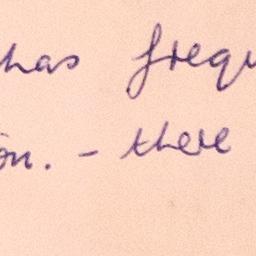 has frequ
on. - there